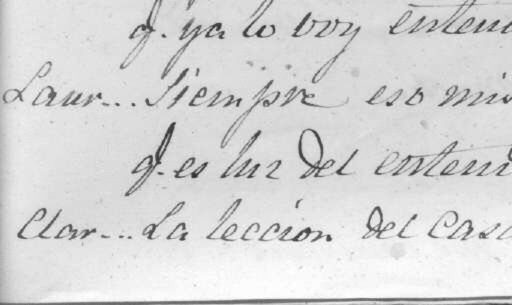 q. ya lo voy enten
Laur... Siempre eso mis
q. es luz del enten
Clar... La leccion del Cas